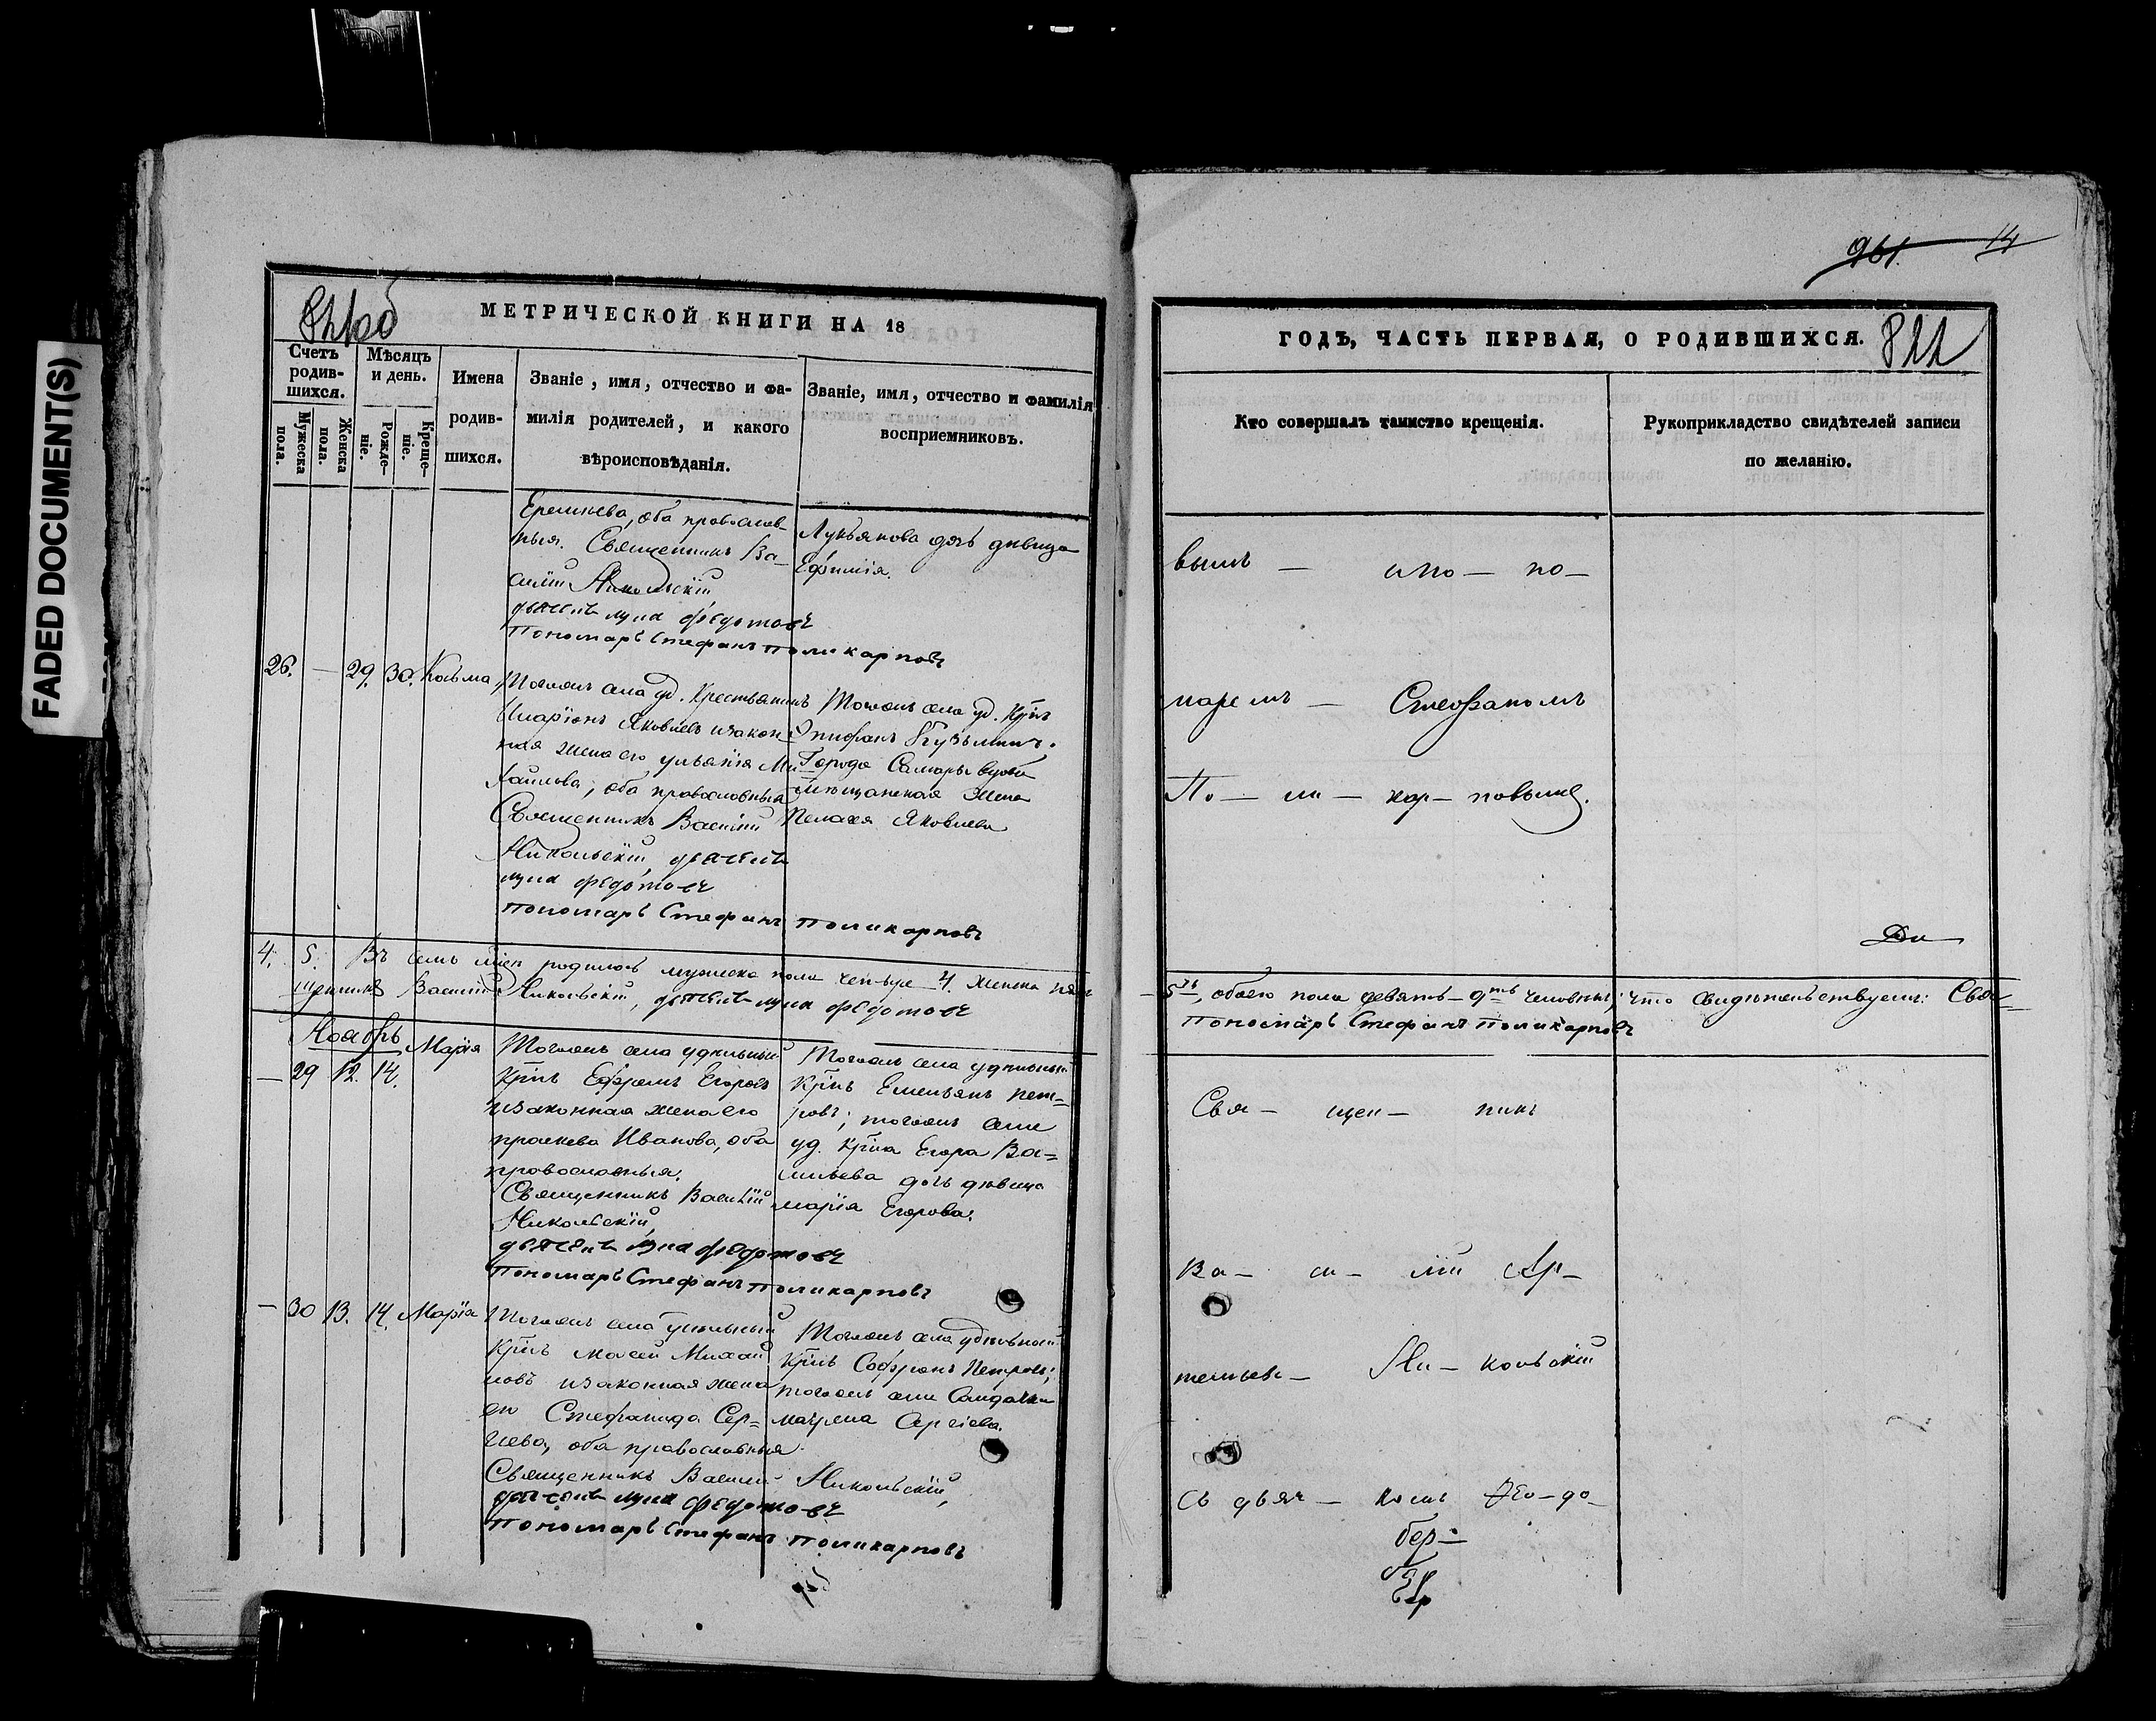 FADED DOCUMENT(S)
961. 14
821об
МЕТРИЧЕСКОЙ КНИГИ НА 18
Счетъ родив-шихся.
Мужеска пола.
Женска пола.
Мѣсяцъ и день.
Рожде-ніе.
Креще-ніе.
Имена родив-шихся.
Званіе, имя, отчество и фа-
милія родителей, и какого
вѣроисповѣданія.
Званіе, имя, отчество и фамилія
восприемниковъ.
Еремѣева, оба православ-
ныя. Священникъ Ва-
силій Никольскій,
дьячекъ Лука Федотовъ
Пономарь Стефанъ Поликарповъ
Лукьянова дочь дѣвица
Ефимія.
26. — 29. 30. Косьма
Тогоже села уд. Крестьянинъ
Иларіонъ Яковлевъ и закон-
ная жена его Ульянія Ми-
хайлова, оба православныя
Священникъ Василій
Никольскій, дьячекъ
Лука Федотовъ
Пономарь Стефанъ Поликарповъ
Тогоже села уд. Крѣнъ
Епифанъ Кузьминъ.
Города Самары
мѣщанская жена
Пелагея Яковлева
4. 5. Въ семъ мцѣ родилось мужеска пола четыре 4. женска пять
щенникъ Василій Никольскій, дьячекъ Лука Федотовъ
Ноябрь
— 29 12. 14. Марія
Тогоже села удѣльный
Крѣнъ Ефремъ Егоровъ
и законная жена его
Праскева Иванова, оба
православныя.
Священникъ Василій
Никольскій,
дьячекъ Лука Федотовъ
Пономарь Стефанъ Поликарповъ
Тогоже села удѣльный
Крѣнъ Емельянъ Пет-
ровъ; тогоже села
уд. Крѣна Егора Ва-
сильева дочь дѣвица
Марія Егорова.
— 30 13. 14. Марія
Тогоже села удѣльный
Крѣнъ Моѵсей Михай
ловъ и законная жена
его Стефанида Сер-
гѣева, оба православныя.
Священникъ Василій Никольскій,
дьячекъ Лука Федотовъ
Пономарь Стефанъ Поликарповъ
Тогоже села удѣльный
Крѣнъ Софронъ Петровъ;
тогоже села Солдатка
Матрена Сергіева.
ГОДЪ, ЧАСТЬ ПЕРВАЯ, О РОДИВШИХСЯ.
822
Кто совершалъ таинство крещенія.
Рукоприкладство свидѣтелей записи
по желанію.
вымъ — и по — но —
маремъ — Стефаномъ
По — ли — кар — повымъ.
5ть, обоего пола девять — 9ть человѣкъ; что свидѣтельствуемъ: Свя-
Пономарь Стефанъ Поликарповъ
Свя — щен — никъ
Ва — си — лій Ар —
темьевъ — Ни — кольскій
съ дьяч — комъ Ѳео — до —